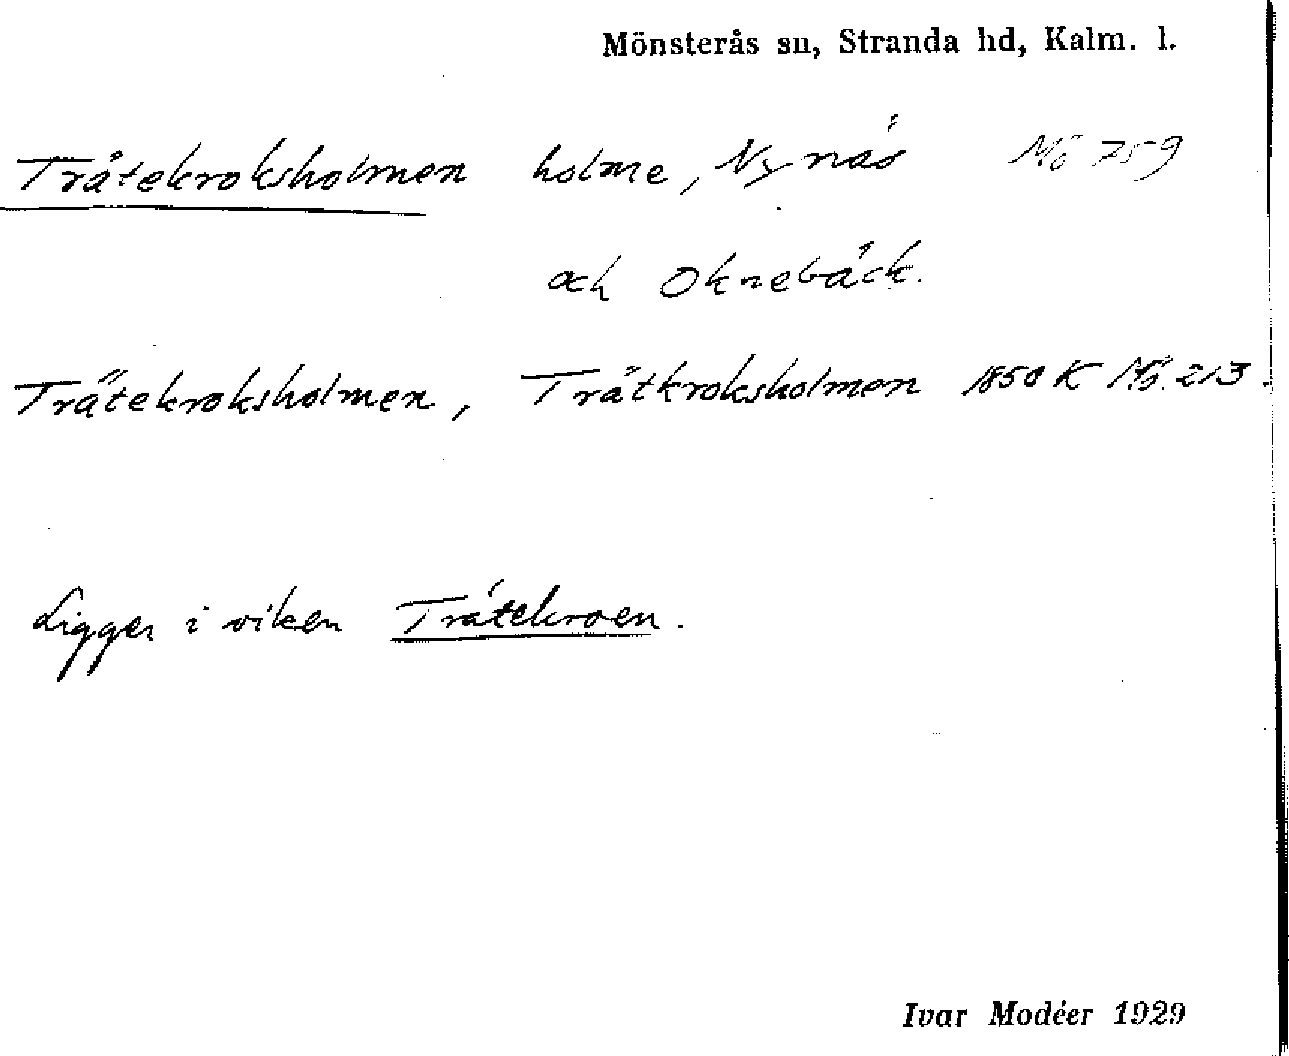 Mönsterås sn, Stranda hd, Kalm. l.
Tråtekroksholmen holme, Nynäs Mö 759
och Oknebäck.
Trätekroksholmen, Trätkroksholmen 1850 K Mö. 213.
Ligger i viken Tråtekroen.
Ivar Modéer 1929